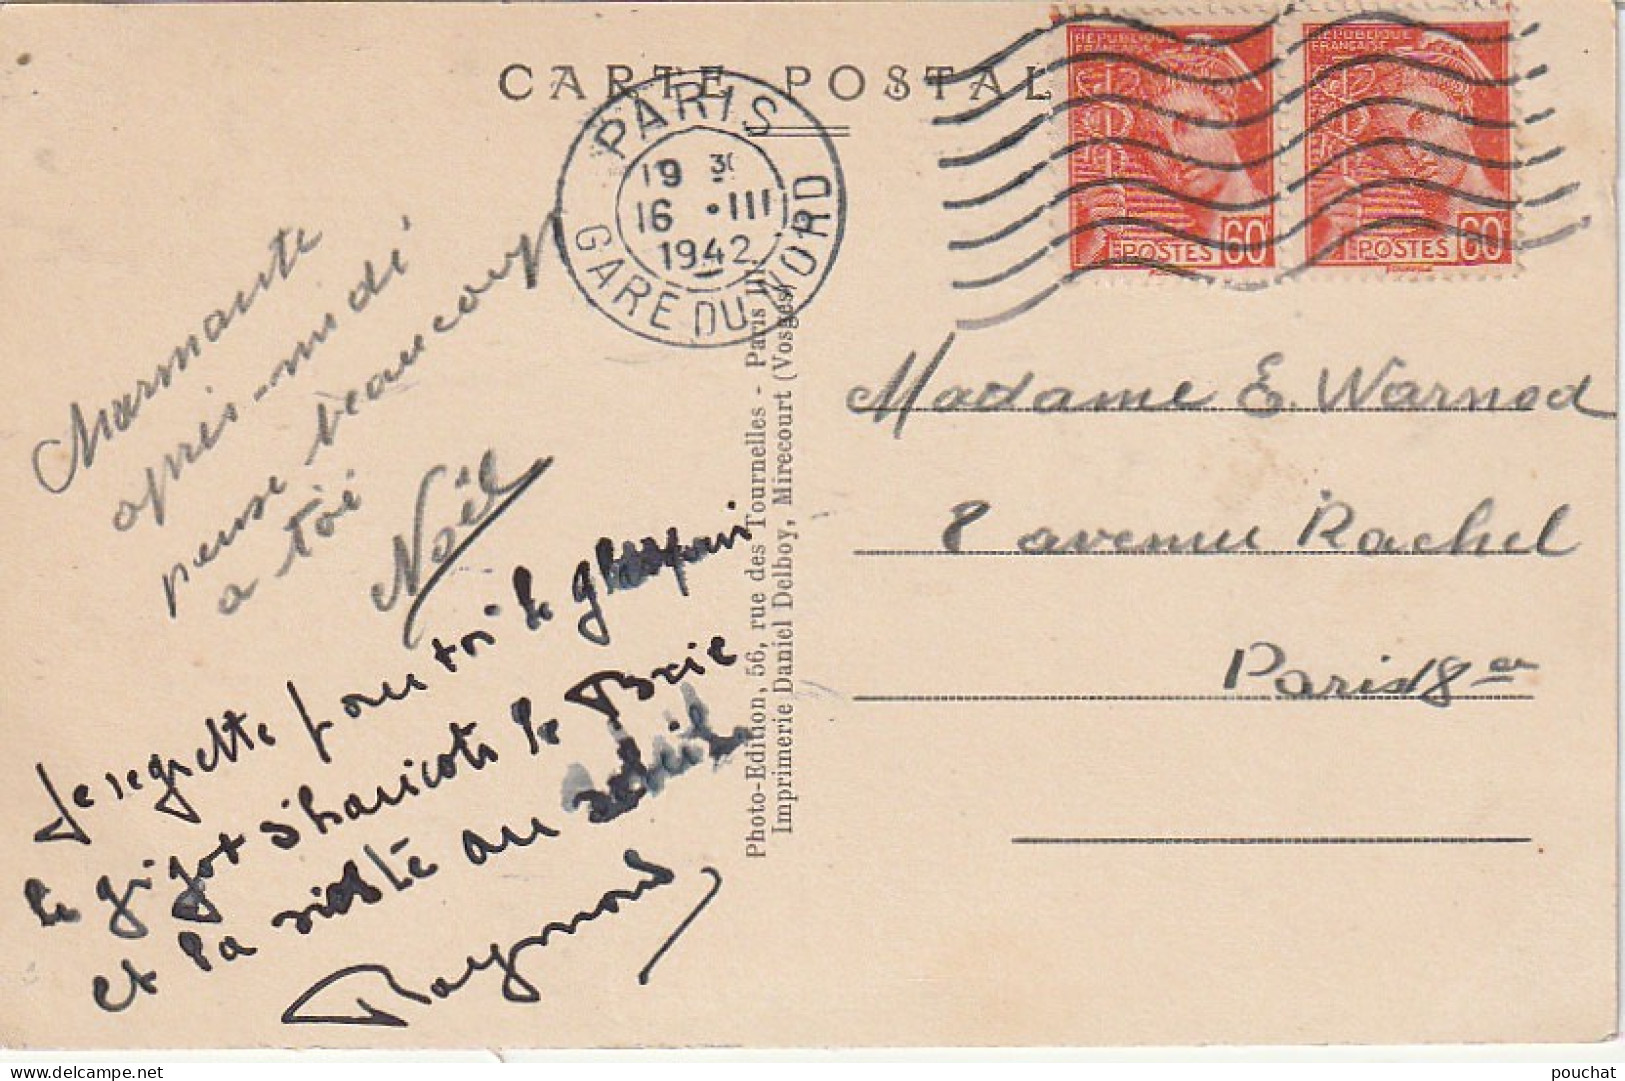 CARTE POSTALE
PARIS
19 30
16 • III
1942
GARE DU NORD
REPUBLIQUE
FRANÇAISE
POSTES 60
REPUBLIQUE
FRANÇAISE
POSTES 60
Marmante
après-midi
pense beaucoup
a toi
Noël
Je regrette pour toi le
le gigot d'haricots le Brie
et la sieste au soleil
Raymond
Photo-Edition, 56, rue des Tournelles - Paris III.
Imprimerie Daniel Delboy, Mirecourt (Vosges)
Madame E. Warnod
8 avenue Rachel
Paris 18 em
pouchat